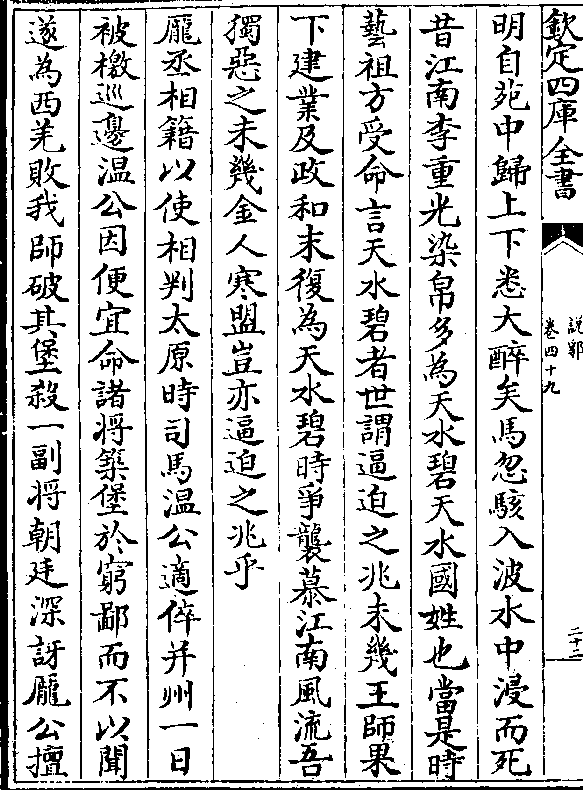 欽定四庫全書
說郛
卷四十九
二十二
明自苑中歸上下悉大醉矣馬忽駭入波水中浸而死
昔江南李重光染帛多為天水碧天水國姓也當是時
藝祖方受命言天水碧者世謂逼迫之兆未幾王師果
下建業及政和末復為天水碧時爭襲慕江南風流吾
獨惡之未幾金人寒盟豈亦逼迫之兆乎
龐丞相籍以使相判太原時司馬溫公適倅并州一日
被檄巡邊溫公因便宜命諸將築堡於窮鄙而不以聞
遂為西羌敗我師破其堡殺一副將朝廷深訝龐公擅